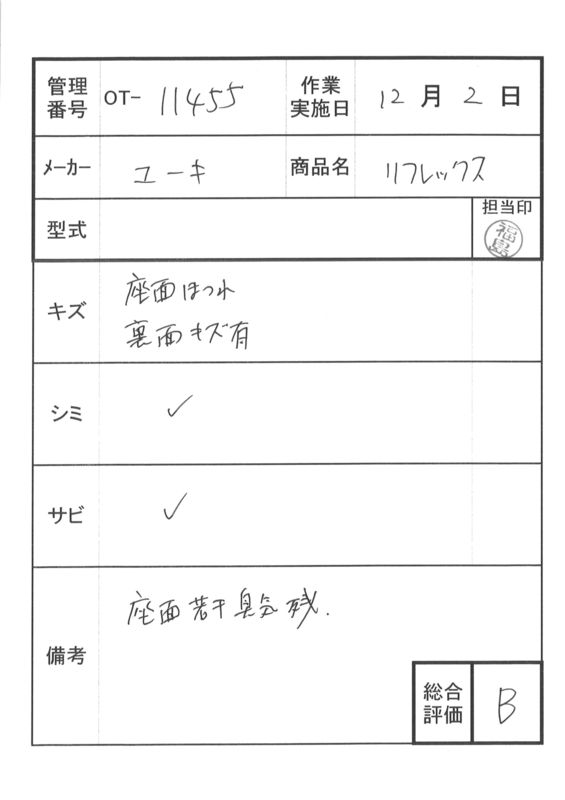 管理番号 OT- 11455 作業実施日 12月2日
メーカー ユーキ 商品名 リフレックス
型式 担当印 福島
キズ 座面ほつれ
裏面キズ有
シミ ✓
サビ ✓
備考 座面若干臭気残.
総合評価 B